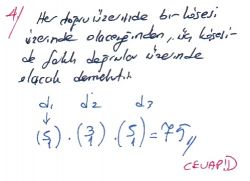 4/ Her doğru üzerinde bir köşesi
üzerinde olacağından, üç köşeli-
de farklı doğrular üzerinde
olacak demektir.
d₁ d₂ d₃
↓
(5/1) . (3/1) . (5/1) = 75//
CEVAP: D